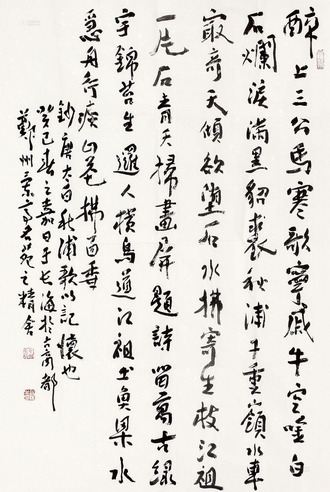 醉上三公馬寒歌寧戚牛空吟白
石爛淚滿黑貂裘秋浦千重嶺水車
嶺最奇天傾欲墮石水拂寄生枝江祖
一片石青天掃畫屏題詩留萬古綠
字錦苔生邏人橫鳥道江祖出魚梁水
急舟行疾山花拂面香
鈔唐太白秋浦歌以記懷也
癸巳春之嘉日于長海於古商都
鄭州 之精舍